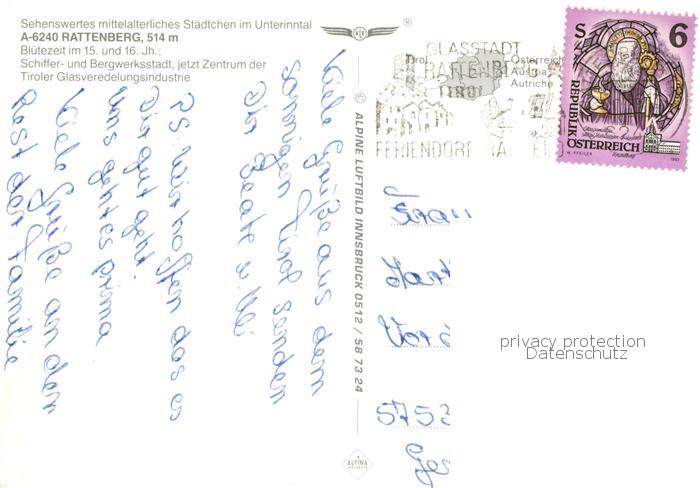 Sehenswertes mittelalterliches Städtchen im Unterinntal
A-6240 RATTENBERG, 514 m
Blütezeit im 15. und 16. Jh.;
Schiffer- und Bergwerksstadt, jetzt Zentrum der
Tiroler Glasveredelungsindustrie
®
Viele Grüße aus dem
sonnigen Tirol senden
Dir Beate u. Uli
PS: Wir hoffen das es
Dir gut geht.
Uns geht es prima
Viele Grüße an den
Rest der Familie
© ALPINE LUFTBILD INNSBRUCK 0512 / 58 73 24
ALPINA
GLASSTADT
RATTENBERG
TIROL
FERIENDORF RA
Tirol
Österreich
Austria
Autriche
S 6
REPUBLIK
ÖSTERREICH
W. PFEILER
1993
Frau
Hart
Vor
575
Ges
privacy protection
Datenschutz